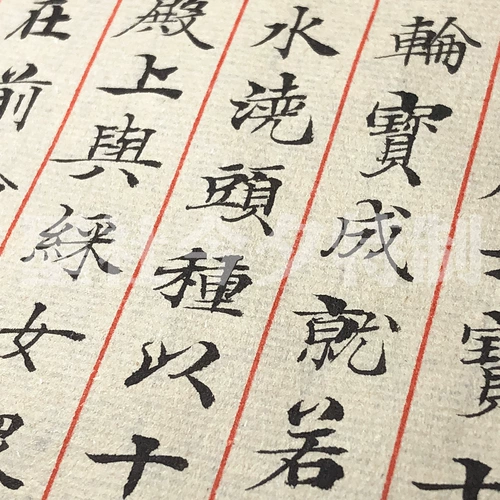 寶
輪寶成就若
水澆頭種以十
殿上與綵女眾
在前